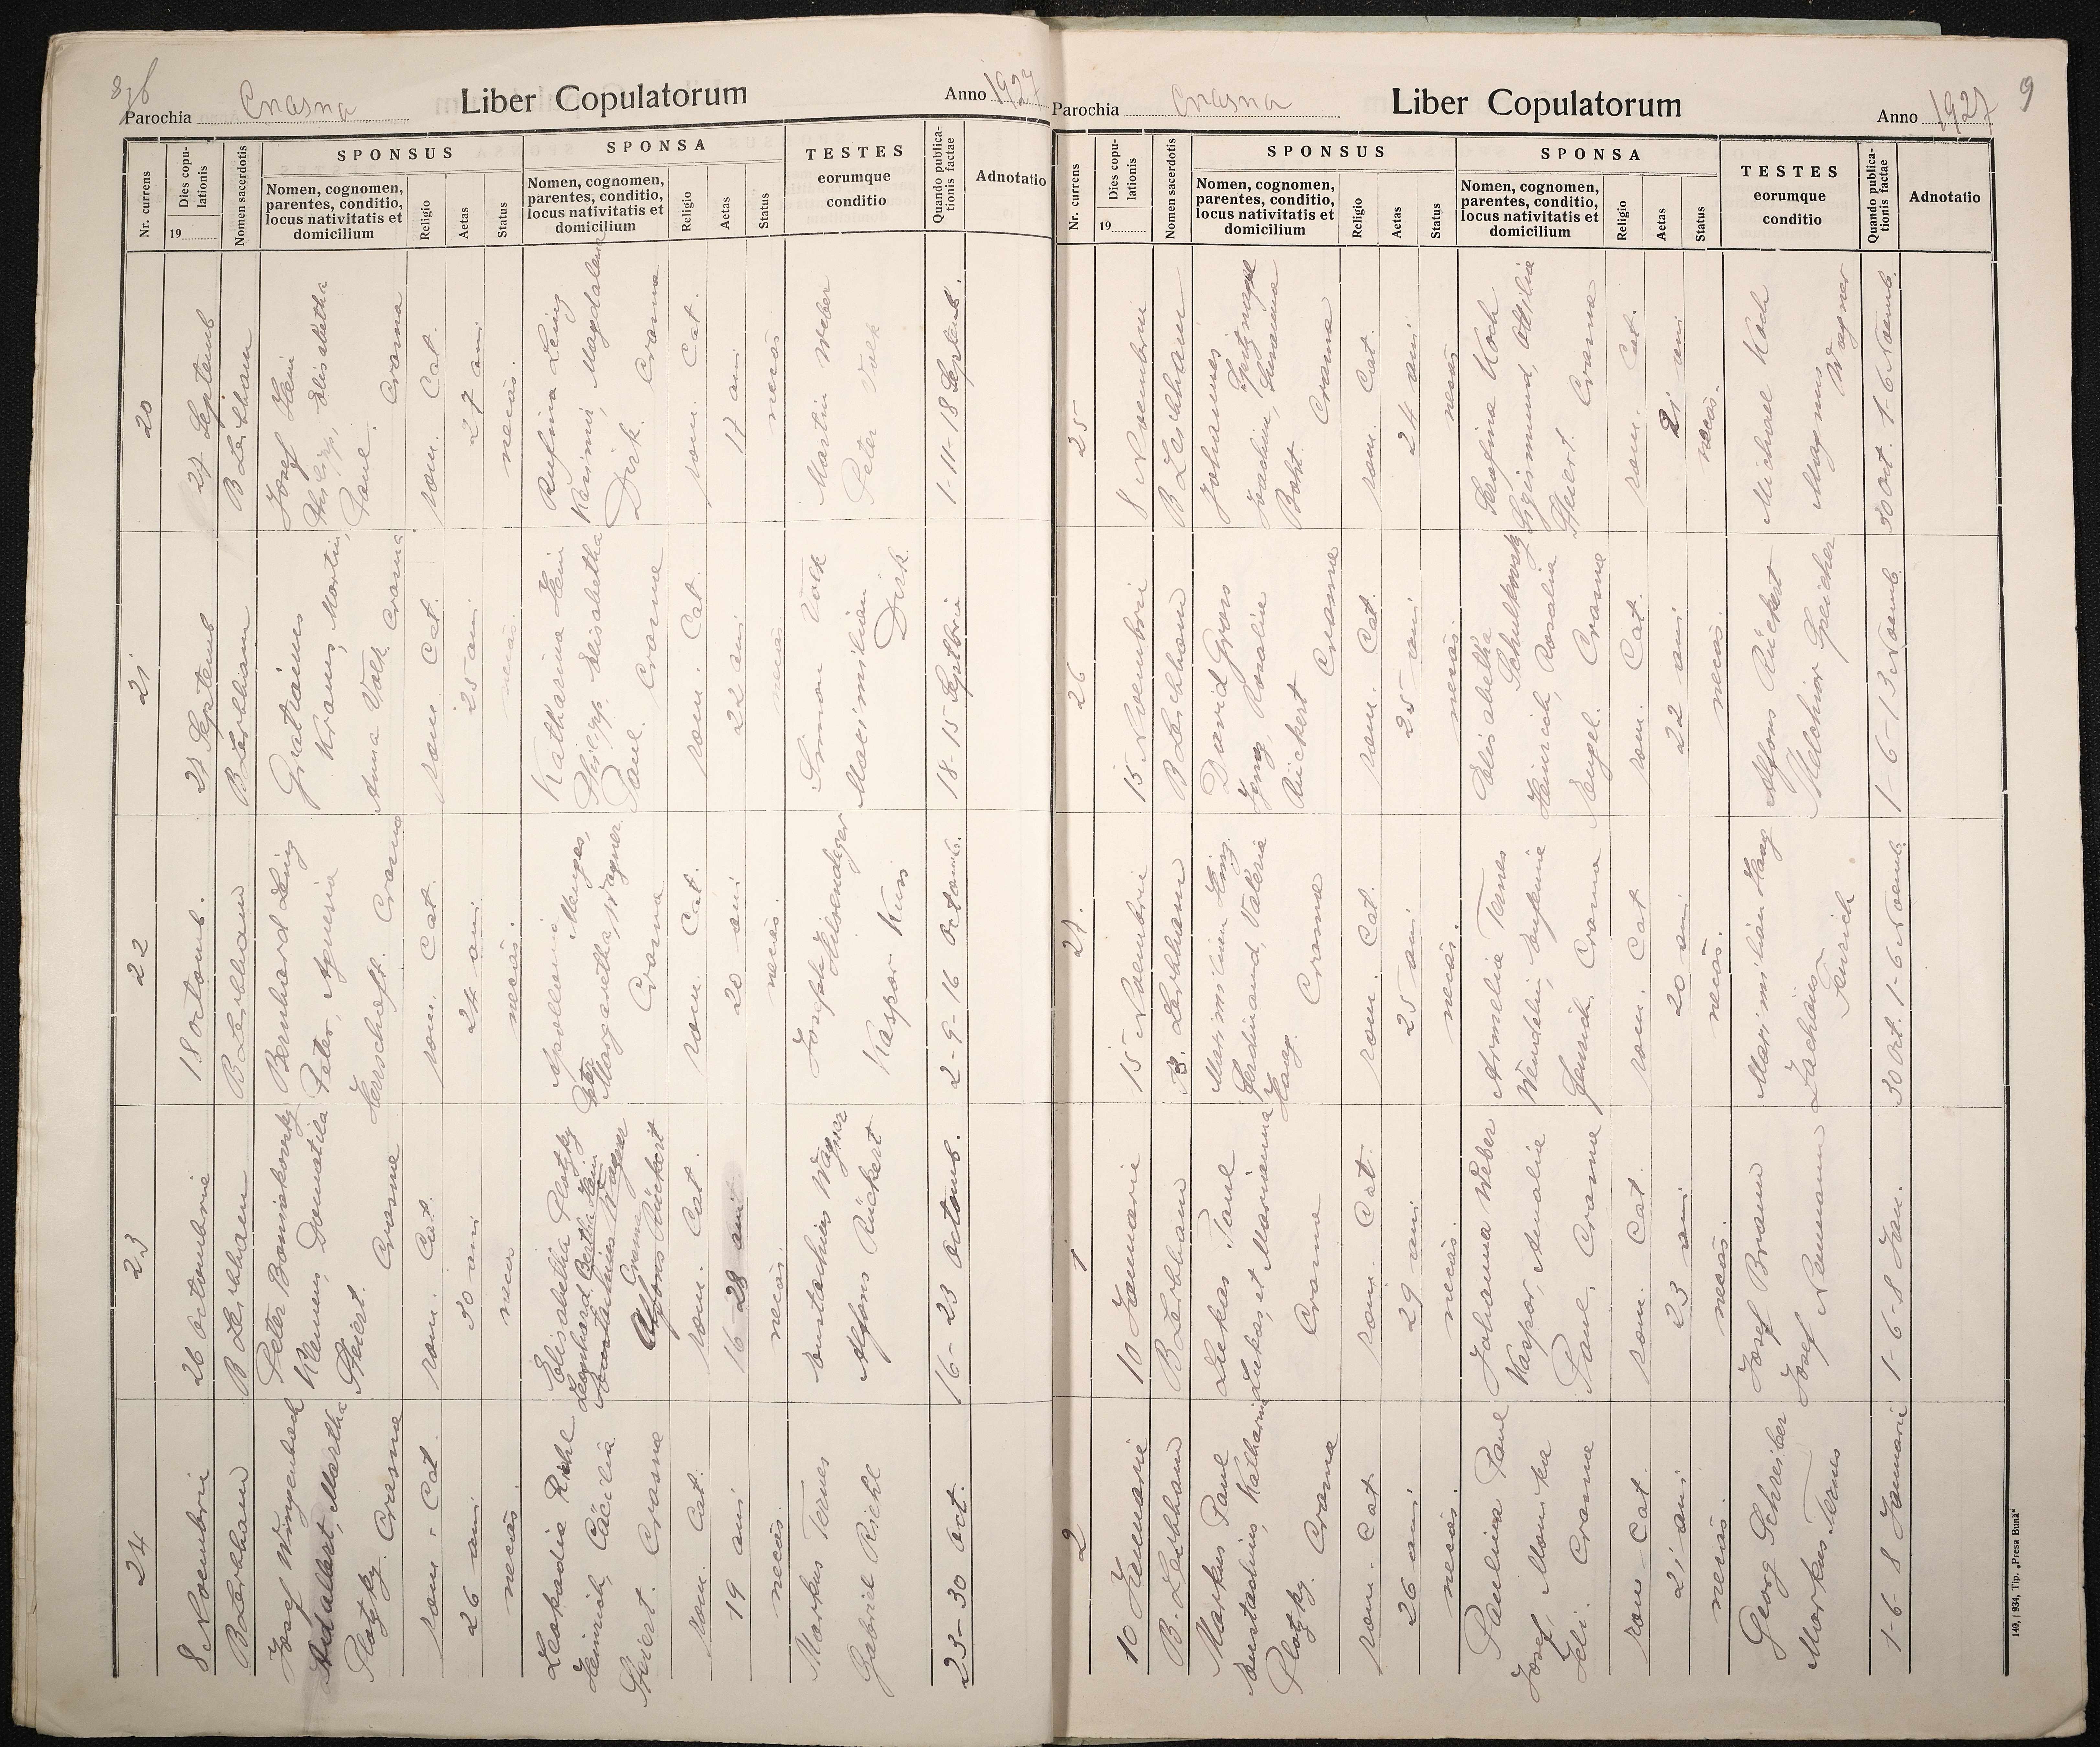 8
Parochia Crasna
Liber Copulatorum
Anno 1927
Nr. currens
Dies copu-
lationis
19
Nomen sacerdotis
SPONSUS
Nomen, cognomen,
parentes, conditio,
locus nativitatis et
domicilium
Religio
Aetas
Status
SPONSA
Nomen, cognomen,
parentes, conditio,
locus nativitatis et
domicilium
Religio
Aetas
Status
TESTES
eorumque
conditio
Quando publica-
tionis factae
Adnotatio
20
27 Septemb
B Leibham
Josef Hein
Philipp, Elisabetha
Paul.
Crasna
rom. Cat.
27 ani
necăs.
Rufina Leinz
Kasimir, Magdalena
Dirk. Crasna
rom. Cat.
17 ani
necăs
Martin Weber
Peter Volk
1-11-18 Septemb.
21
27 Septemb
B Leibham
Gratianus
Kraus, Martin,
Anna Volk Crasna
rom. Cat.
25 ani
necăs.
Katharina Hein
Philipp, Elisabetha
Paul. Crasna
rom. Cat.
22 ani
necăs.
Simon Volk
Maximilian
Dirk
18-15 Septbrie
22
18 Octomb.
B Leibham
Bernhard Leinz
Peter, Agnesia
Herrschaft. Crasna
rom. Cat.
24 ani
necăs.
Apollonia
Menges,
Peter
Margaretha Wagner.
Crasna
rom. Cat.
20 ani
necăs.
Joseph
Hilsendeger
Kaspar Kuss
2-9-16 Octomb.
23
26 Octombrie
B Leibham
Peter Boniakowsky
Klemens, Domitila
Steiert.
Crasna
rom. Cat.
30 ani
necas
Elisabetha Plotzky
Leonhard Bertha Hein
Eustachius Wagner
Crasna
Alfons Rückert
rom. Cat.
16 28 ani
necăs.
Eustachius Wagner
Alfons Rückert
16-23 Octomb.
24
8 Noembrie
B Leibham
Josef Wingenbach
Adalbert, Martha
Plotzky. Crasna
rom. Cat.
26 ani
necăs.
Leokadia Riehl
Heinrich, Cäcilia
Steiert. Crasna
rom. Cat.
19 ani
necăs.
Markus Ternes
Gabriel Riehl
23-30 Oct.
9
Parochia Crasna
Liber Copulatorum
Anno 1927
Nr. currens
Dies copu-
lationis
19
Nomen sacerdotis
SPONSUS
Nomen, cognomen,
parentes, conditio,
locus nativitatis et
domicilium
Religio
Aetas
Status
SPONSA
Nomen, cognomen,
parentes, conditio,
locus nativitatis et
domicilium
Religio
Aetas
Status
TESTES
eorumque
conditio
Quando publica-
tionis factae
Adnotatio
25
8 Noembrie
B Leibham
Johannes
Spitznagel
Joachim, Seraina
Bohk.
Crasna
rom. Cat.
24 ani
necăs
Serafina Koch
Sigismund, Ottilia
Steiert. Crasna
rom. Cat.
21 ani
necăs.
Michael Koch
Magnus
Wagner
30 Oct. 1-6 Noemb.
26
15 Noembrie
B Leibham
David Gross
Ignaz, Rosalia
Rückert
Crasna
rom. Cat.
25 ani
necăs.
Elisabetha
Schulkowsky
Heinrich, Rosalia
Engel. Crasna
rom. Cat.
22 ani
necăs.
Alfons Rückert
Melchior Speicher
1-6-13 Noemb.
27.
15 Noembrie
B. Leibham
Maximilian Leinz
Ferdinand, Valeria
Haag. Crasna
rom. Cat.
25 ani
necăs.
Armelia Ternes
Wendelin, Eufemie
Fenrich. Crasna
rom. Cat
20 ani
necăs.
Maximilian Haag
Zachäus
Fenrich
30 Oct. 1-6 Noemb.
1
10 Januarie
B Leibham
Lukas Paul
Lukas, et Marianna
Crasna
rom. Cat.
29 ani
necăs.
Johanna Weber
Kaspar, Amalia
Paul. Crasna
rom. Cat.
23 ani
necăs.
Josef Braun
Josef Neumann
1-6-8 Jan.
2
10 Januarie
B. Leibham
Markus Paul
Eustachius, Katharina
Plotzky. Crasna
rom. Cat.
26 ani
necăs.
Paulina Paul
Josef, Monika
Jeli. Crasna
rom Cat.
21 ani
necăs.
Georg Schreiber
Markus Ternes
1-6-8 Januarie
149, 1934, Tip. „Presa Bună"